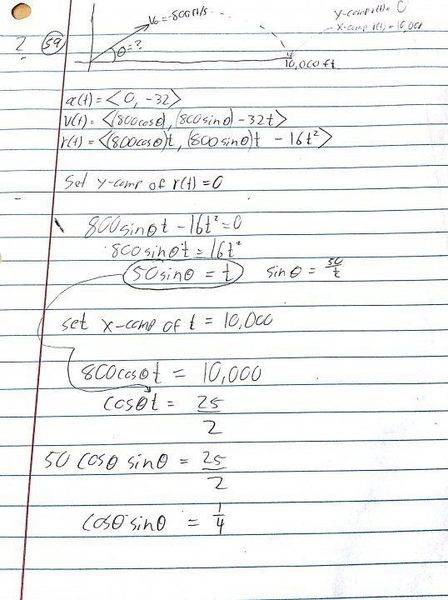 2 59 V₀=800ft/s y-comp r(t)=0
θ=? x-comp r(t)=10,000
10,000ft
a(t)=<0, -32>
v(t)=<(800cosθ), (800sinθ)-32t>
r(t)=<(800cosθ)t, (800sinθ)t -16t²>
Set y-comp of r(t)=0
800sinθt -16t²=0
800sinθt=16t²
50sinθ=t sinθ=50/t
set x-comp of t = 10,000
800cosθt = 10,000
cosθt = 25/2
50 cosθ sinθ = 25/2
cosθsinθ = 1/4